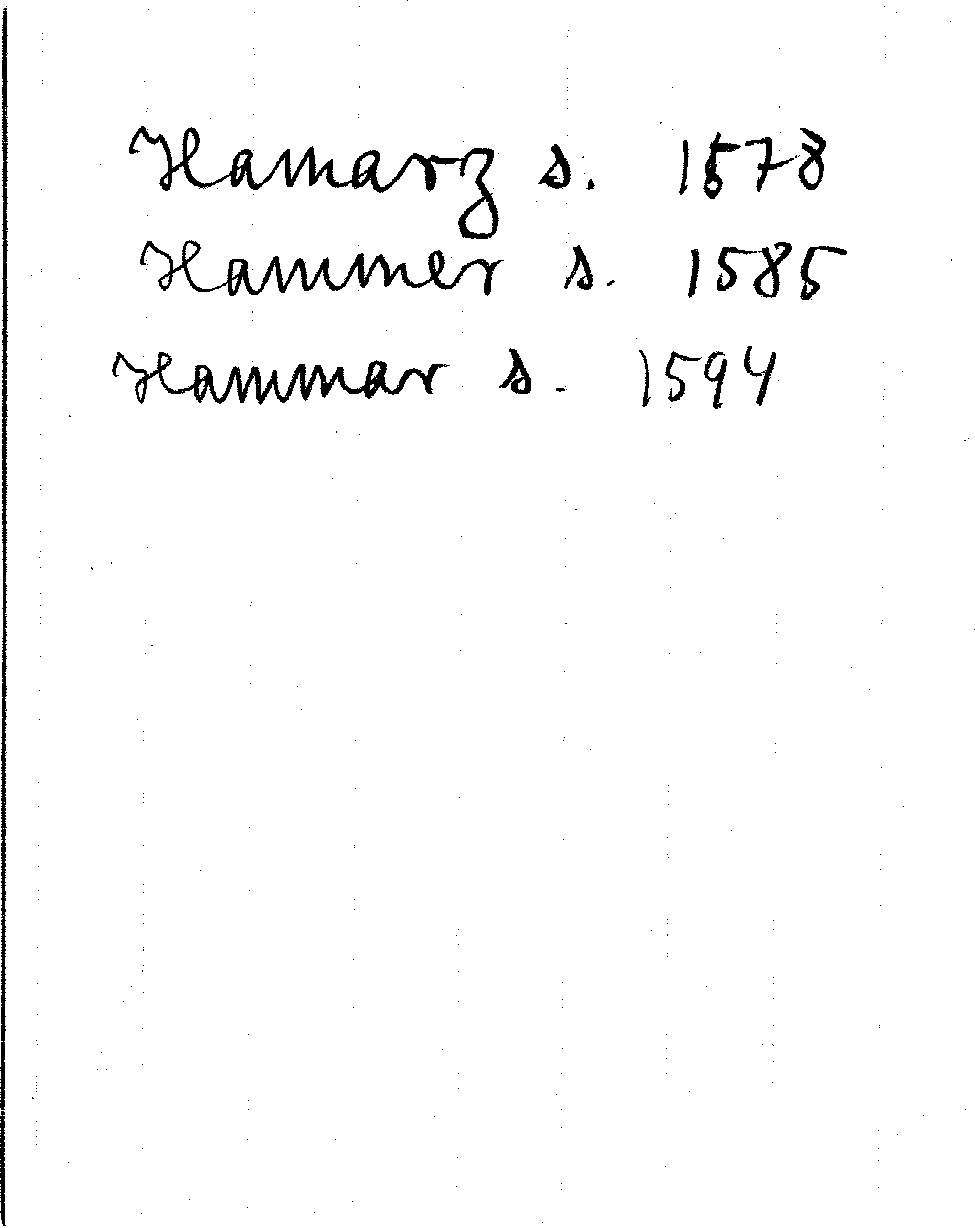 Hamarz s. 1578
Hammer s. 1585
Hammar s. 1594